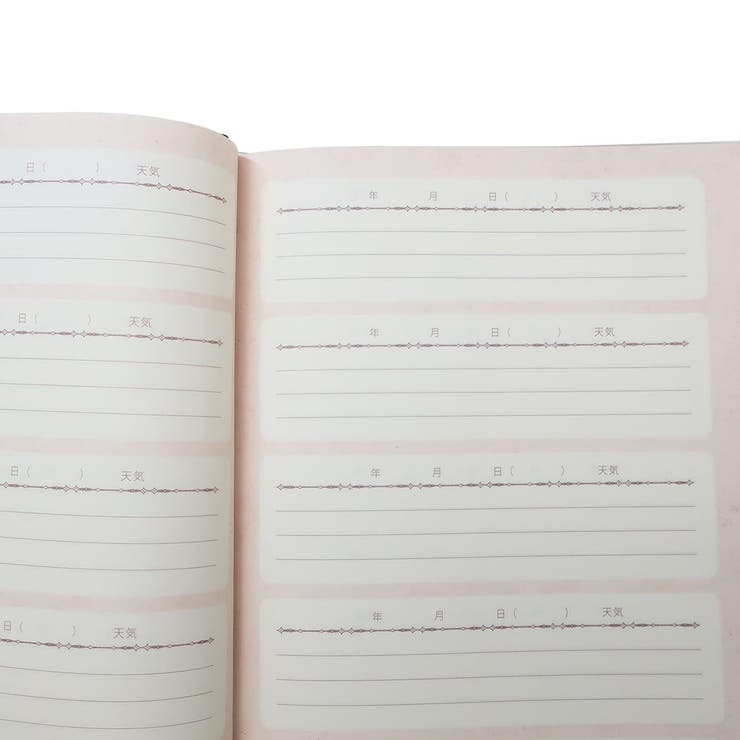 日( ) 天気
日( ) 天気
日( ) 天気
日( ) 天気
年 月 日( ) 天気
年 月 日( ) 天気
年 月 日( ) 天気
年 月 日( ) 天気